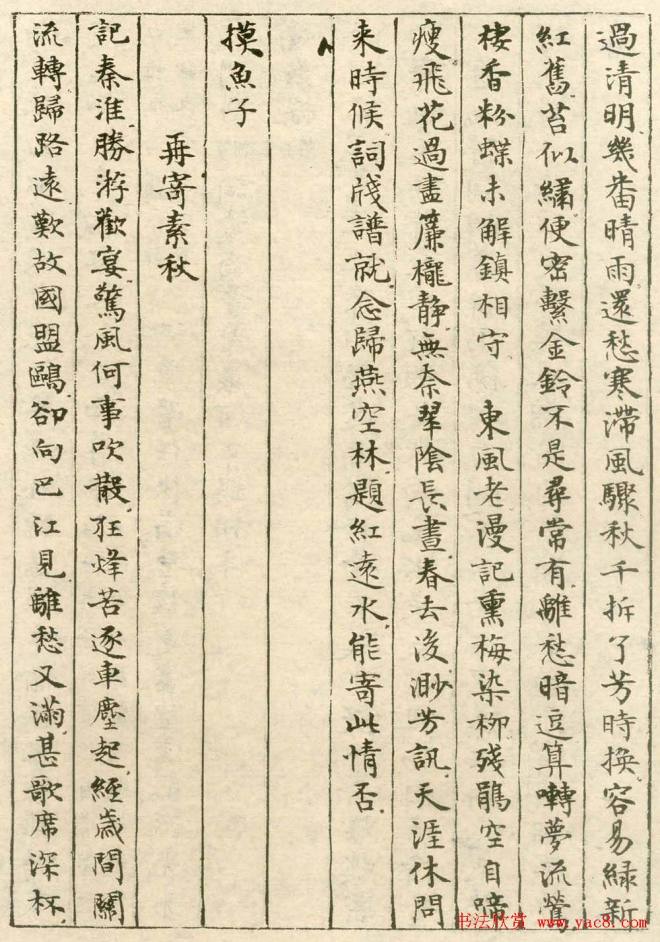 過清明幾番晴雨還愁寒滯風驟秋千拆了芳時換容易緑新
紅舊苔似繡便密繫金鈴不是尋常有離愁暗逗算囀夢流鶯
棲香粉蝶未解鎮相守 東風老漫記熏梅染柳殘鵑空自啼
瘦飛花過盡簾櫳静無奈翠陰長晝春去後渺芳訊天涯休問
来時候詞牋譜就念歸燕空林題紅遠水能寄此情否
摸魚子
再寄素秋
記秦淮勝游歡宴驚風何事吹散狂烽苦逐車塵起經歲間關
流轉歸路遠歎故國盟鷗卻向巴江見離愁又滿甚歌席深杯
书法欣赏 www.yac8.com